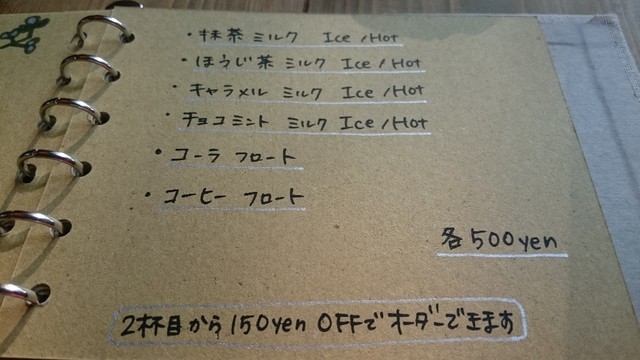 ・抹茶 ミルク Ice / Hot
・ほうじ茶 ミルク Ice / Hot
・キャラメル ミルク Ice / Hot
・チョコミント ミルク Ice / Hot
・コーラ フロート
・コーヒー フロート
各500yen
2杯目から150yen OFFでオーダーできます